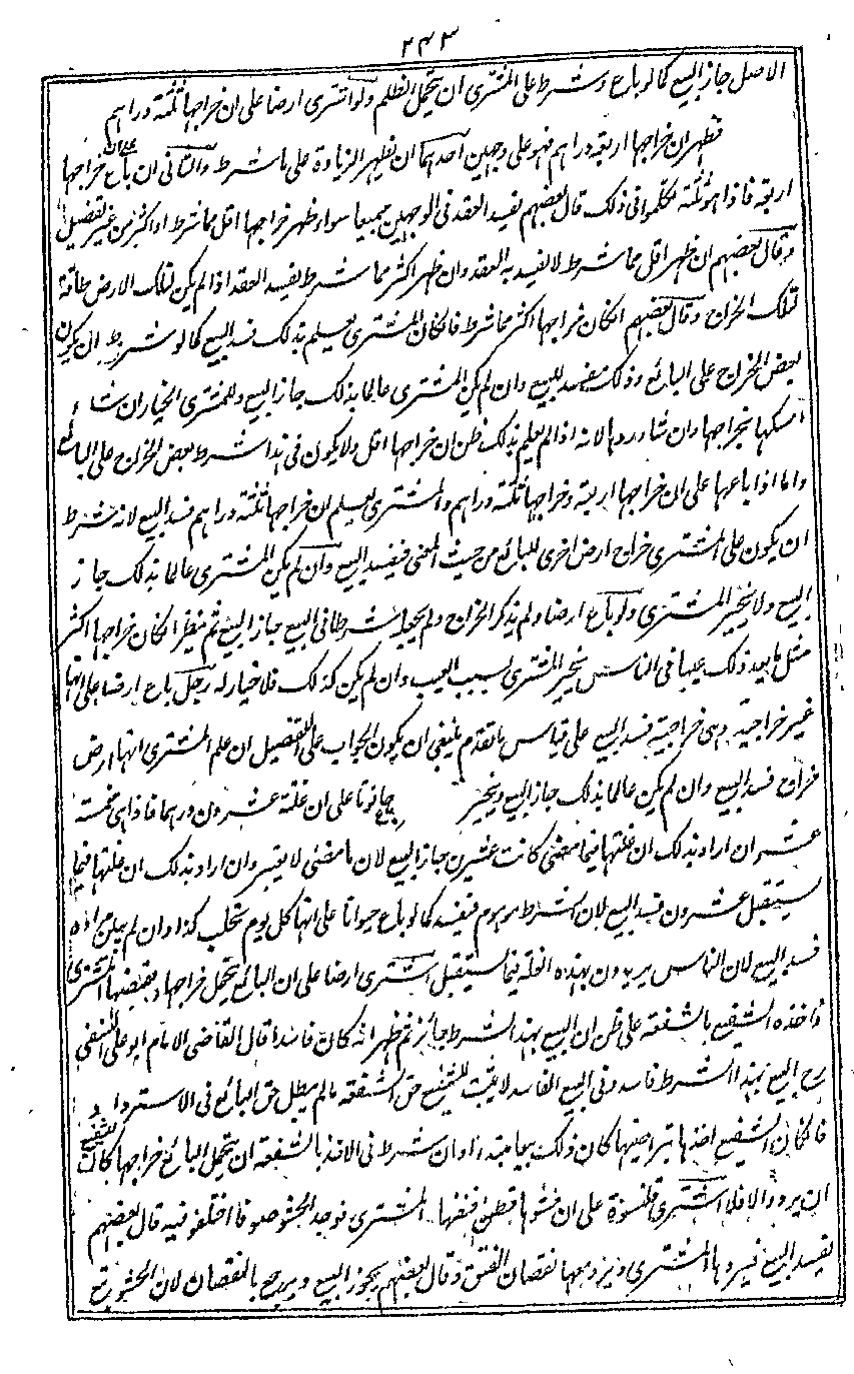 ٢٤٣
الاصل جاز البيع كما لو باع وشرط على المشترى ان يتحمل الظلم ولو اشترى ارضا على ان خراجها ثلثة دراهم
فظهر ان خراجها اربعة دراهم فهو على وجهين احدهما ان يظهر الزيادة على ما شرط والثانى ان باع على ان خراجها
اربعة فاذا هو ثلثة تكلموا فى ذلك قال بعضهم يفسد العقد فى الوجهين جميعا سواء ظهر خراجها اقل مما شرط او اكثر من غير تفصيل
وقال بعضهم ان ظهر اقل مما شرط لا يفسد به العقد وان ظهر اكثر مما شرط يفسد العقد اذا لم يكن لتلك الارض طاقة
لتلك الخراج وقال بعضهم انكان خراجها اكثر مما شرط فانكان المشترى يعلم بذلك فسد البيع كما لو شرط ان يكون
بعض الخراج على البائع وذلك مفسد للبيع وان لم يكن المشترى عالما بذلك جاز البيع وللمشترى الخيار ان شاء
امسكها بخراجها وان شاء ردها لانه اذا لم يعلم بذلك ظن ان خراجها اقل ولا يكون فى هذا شرط بعض الخراج على البائع
واما اذا باعها على ان خراجها اربعة وخراجها ثلثة دراهم والمشترى يعلم ان خراجها ثلثة دراهم فسد البيع لانه شرط
ان يكون على المشترى خراج ارض اخرى للبائع من حيث المعنى فيفسد البيع وان لم يكن المشترى عالما بذلك جاز
البيع ولا يخير المشترى ولو باع ارضا ولم يذكر الخراج ولم يجعله شرطا فى البيع جاز البيع ثم ينظر انكان خراجها اكثر
مثل ما يعد ذلك عيبا فى الناس يخير المشترى بسبب العيب وان لم يكن كذلك فلا خيار له رجل باع ارضا على انها
غير خراجية وهى خراجية فسد البيع على قياس ما تقدم ينبغى ان يكون الجواب على التفصيل ان علم المشترى انها ارض
خراج فسد البيع وان لم يكن عالما بذلك جاز البيع ويخير حانوتا على ان غلته عشرون درهما فاذا هى خمسة
عشر ان اراد بذلك ان غلتها فيما مضى كانت عشرين جاز البيع لان ما مضى لا يتغير وان اراد بذلك ان غلتها فيما
يستقبل عشرون فسد البيع لان شرط موهوم فيفسد كما لو باع حيوانا على انها كل يوم تحلب كذا وان لم يبين مراده
فسد البيع لان الناس يريدون بهذه الغلة فيما يستقبل اشترى ارضا على ان البائع يتحمل خراجها وبقبضها المشترى
فاخذه الشفيع بالشفعة على ظن ان البيع بهذا الشرط جائز ثم ظهر انه كان فاسدا قال القاضى الامام ابو على النسفى
رح البيع بهذا الشرط فاسد وفى البيع الفاسد لا يثبت للشفيع حق الشفعة ما لم يبطل حق البائع فى الاسترداد
فانكان الشفيع اخذها بتراضيهما كان ذلك بيعا مبتدءا وان شرط فى الاخذ بالشفعة ان يتحمل البائع خراجها كان للشفيع
ان يرد والا فلا اشترى قلنسوة على ان حشوها قطن ففتقها المشترى فوجد الحشو صوفا اختلفوا فيه قال بعضهم
يفسد البيع فيردها المشترى ويرد معها نقصان الفتق وقال بعضهم يجوز البيع ويرجع بالنقصان لان الحشو تبع